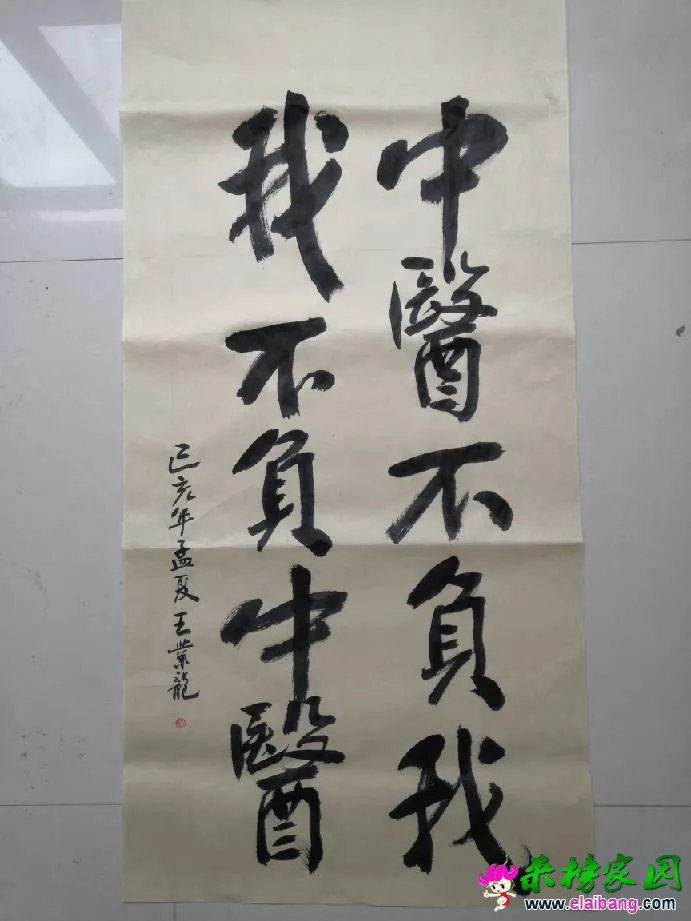 中醫不負我
我不負中醫
己亥年孟夏王業龍
来榜家园
www.elaibang.com